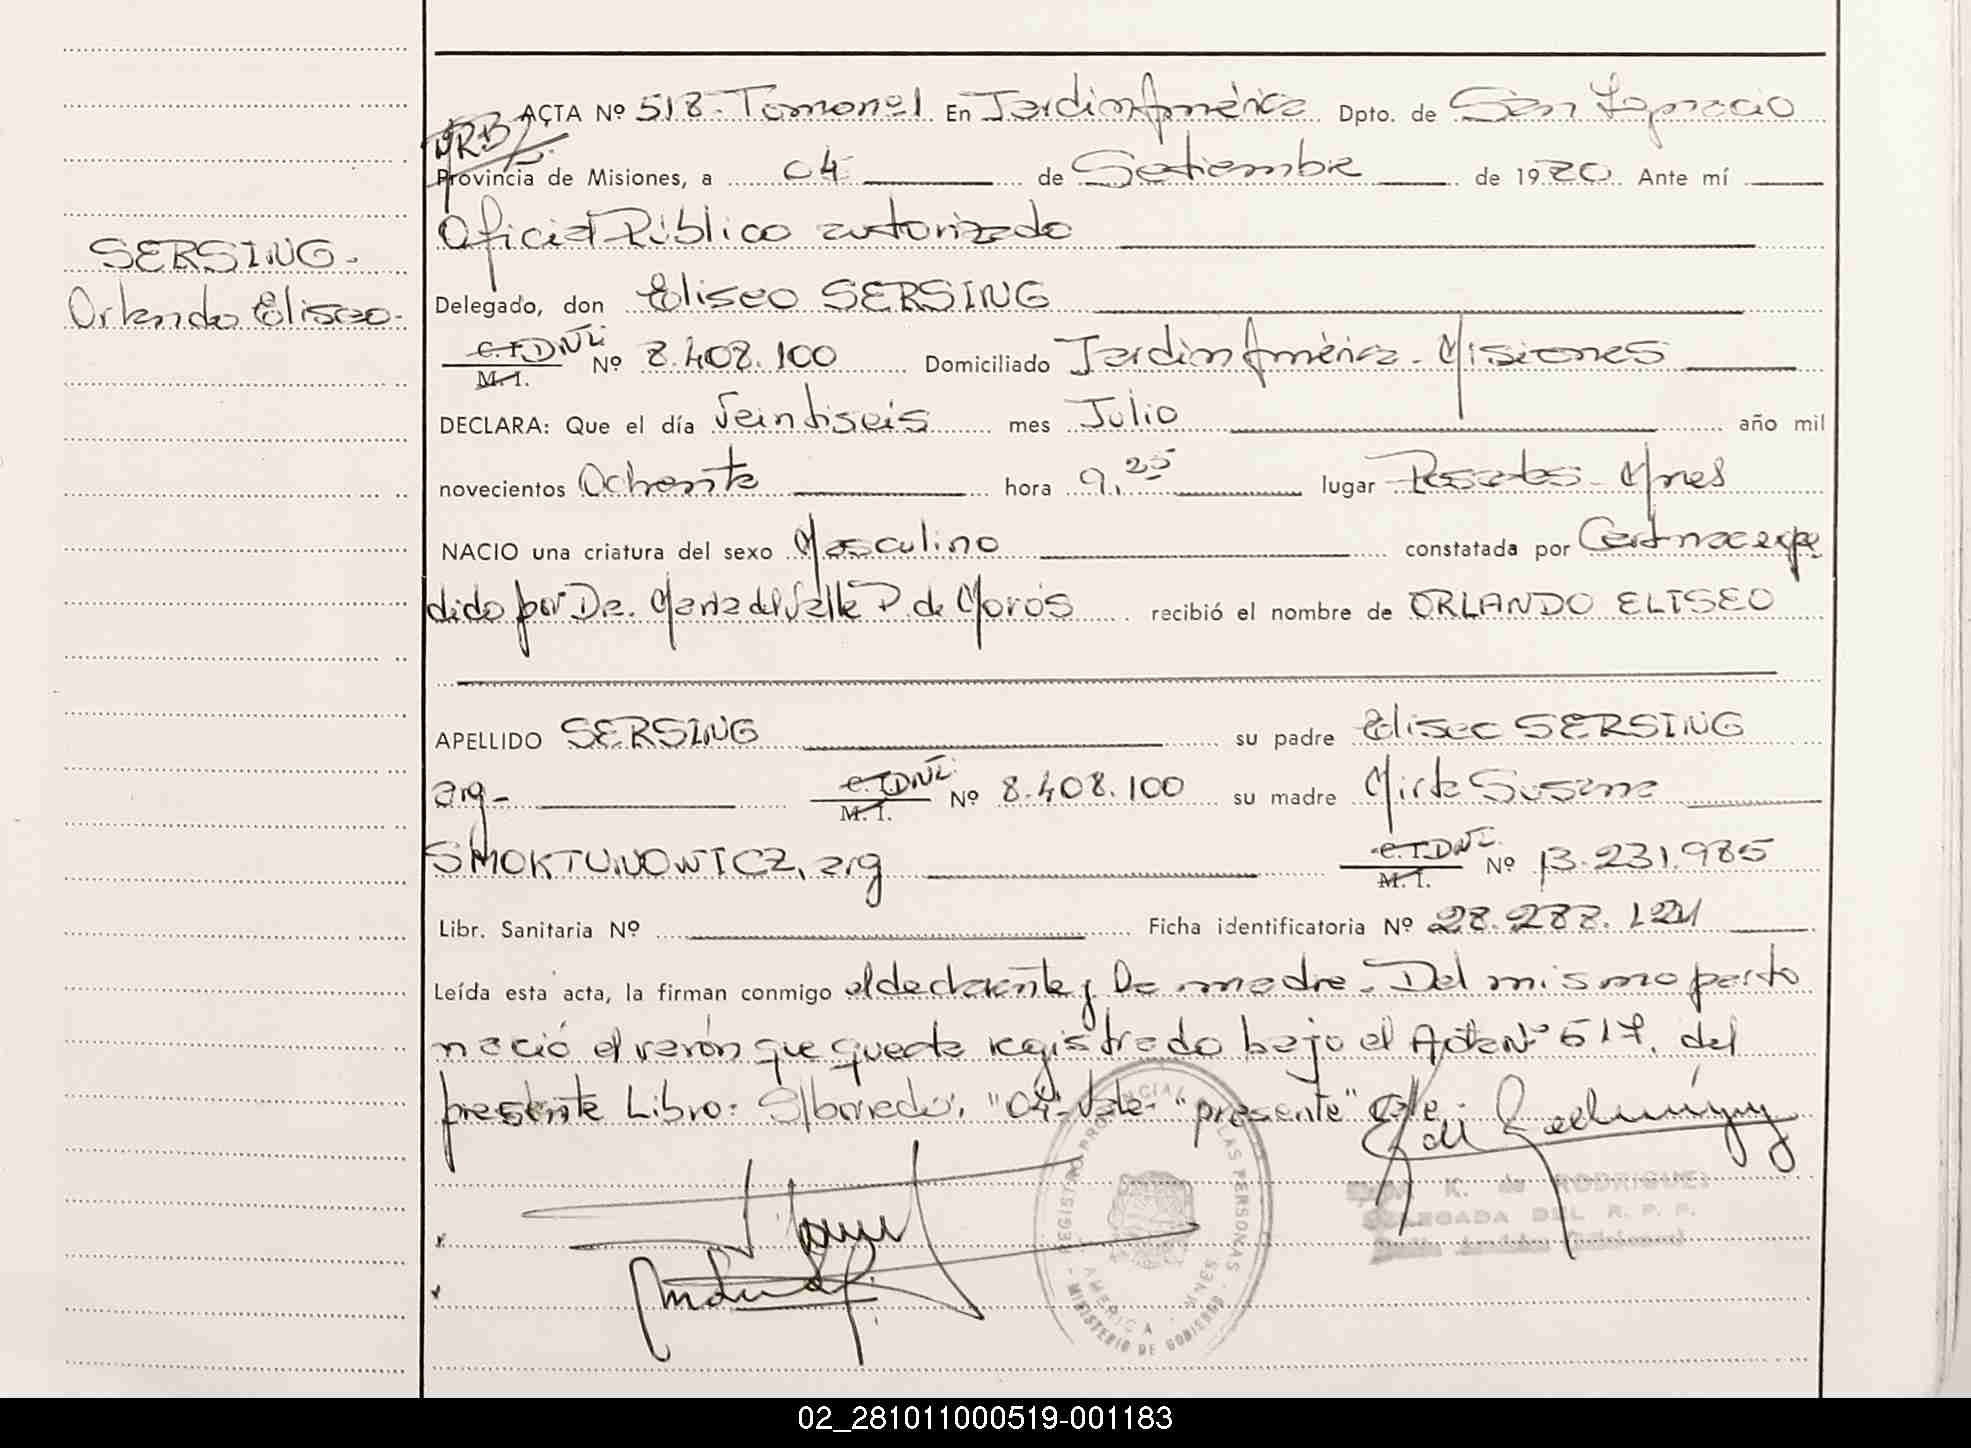 ACTA Nº 518- Tomo nº1 En Jardín América Dpto. de San Ignacio
Provincia de Misiones, a 04 de Setiembre de 1980 Ante mí
Oficial Público autorizado
SERSING-
Orlando Eliseo-
Delegado, don Eliseo SERSING
C.I. DNI. M.I. Nº 8.408.100 Domiciliado Jardín América- Misiones
DECLARA: Que el día Veintiseis mes Julio año mil
novecientos Ochenta hora 9,25 lugar Posadas- Mnes
NACIO una criatura del sexo Masculino constatada por Cert nac expe
dido por Dra. María del Valle P. de Moros recibió el nombre de ORLANDO ELISEO
APELLIDO SERSING su padre Eliseo SERSING
arg- C.I. DNI. M.I. Nº 8.408.100 su madre Mirta Susana
SMOKTUNOWICZ, arg C.I. DNI. M.I. Nº 13.231.985
Libr. Sanitaria Nº Ficha identificatoria Nº 28.288.124
Leída esta acta, la firman conmigo el declarante y la madre- Del mismo parto
nació el varón que queda registrado bajo el Acta Nº 517, del
presente Libro: S/borrado: "04" Vale- "presente" Vale-
REGISTRO PROVINCIAL DE LAS PERSONAS
AMERICA - MNES
- MINISTERIO DE GOBIERNO -
K. de RODRIGUEZ
DELEGADA DEL R. P. P.
02_281011000519-001183